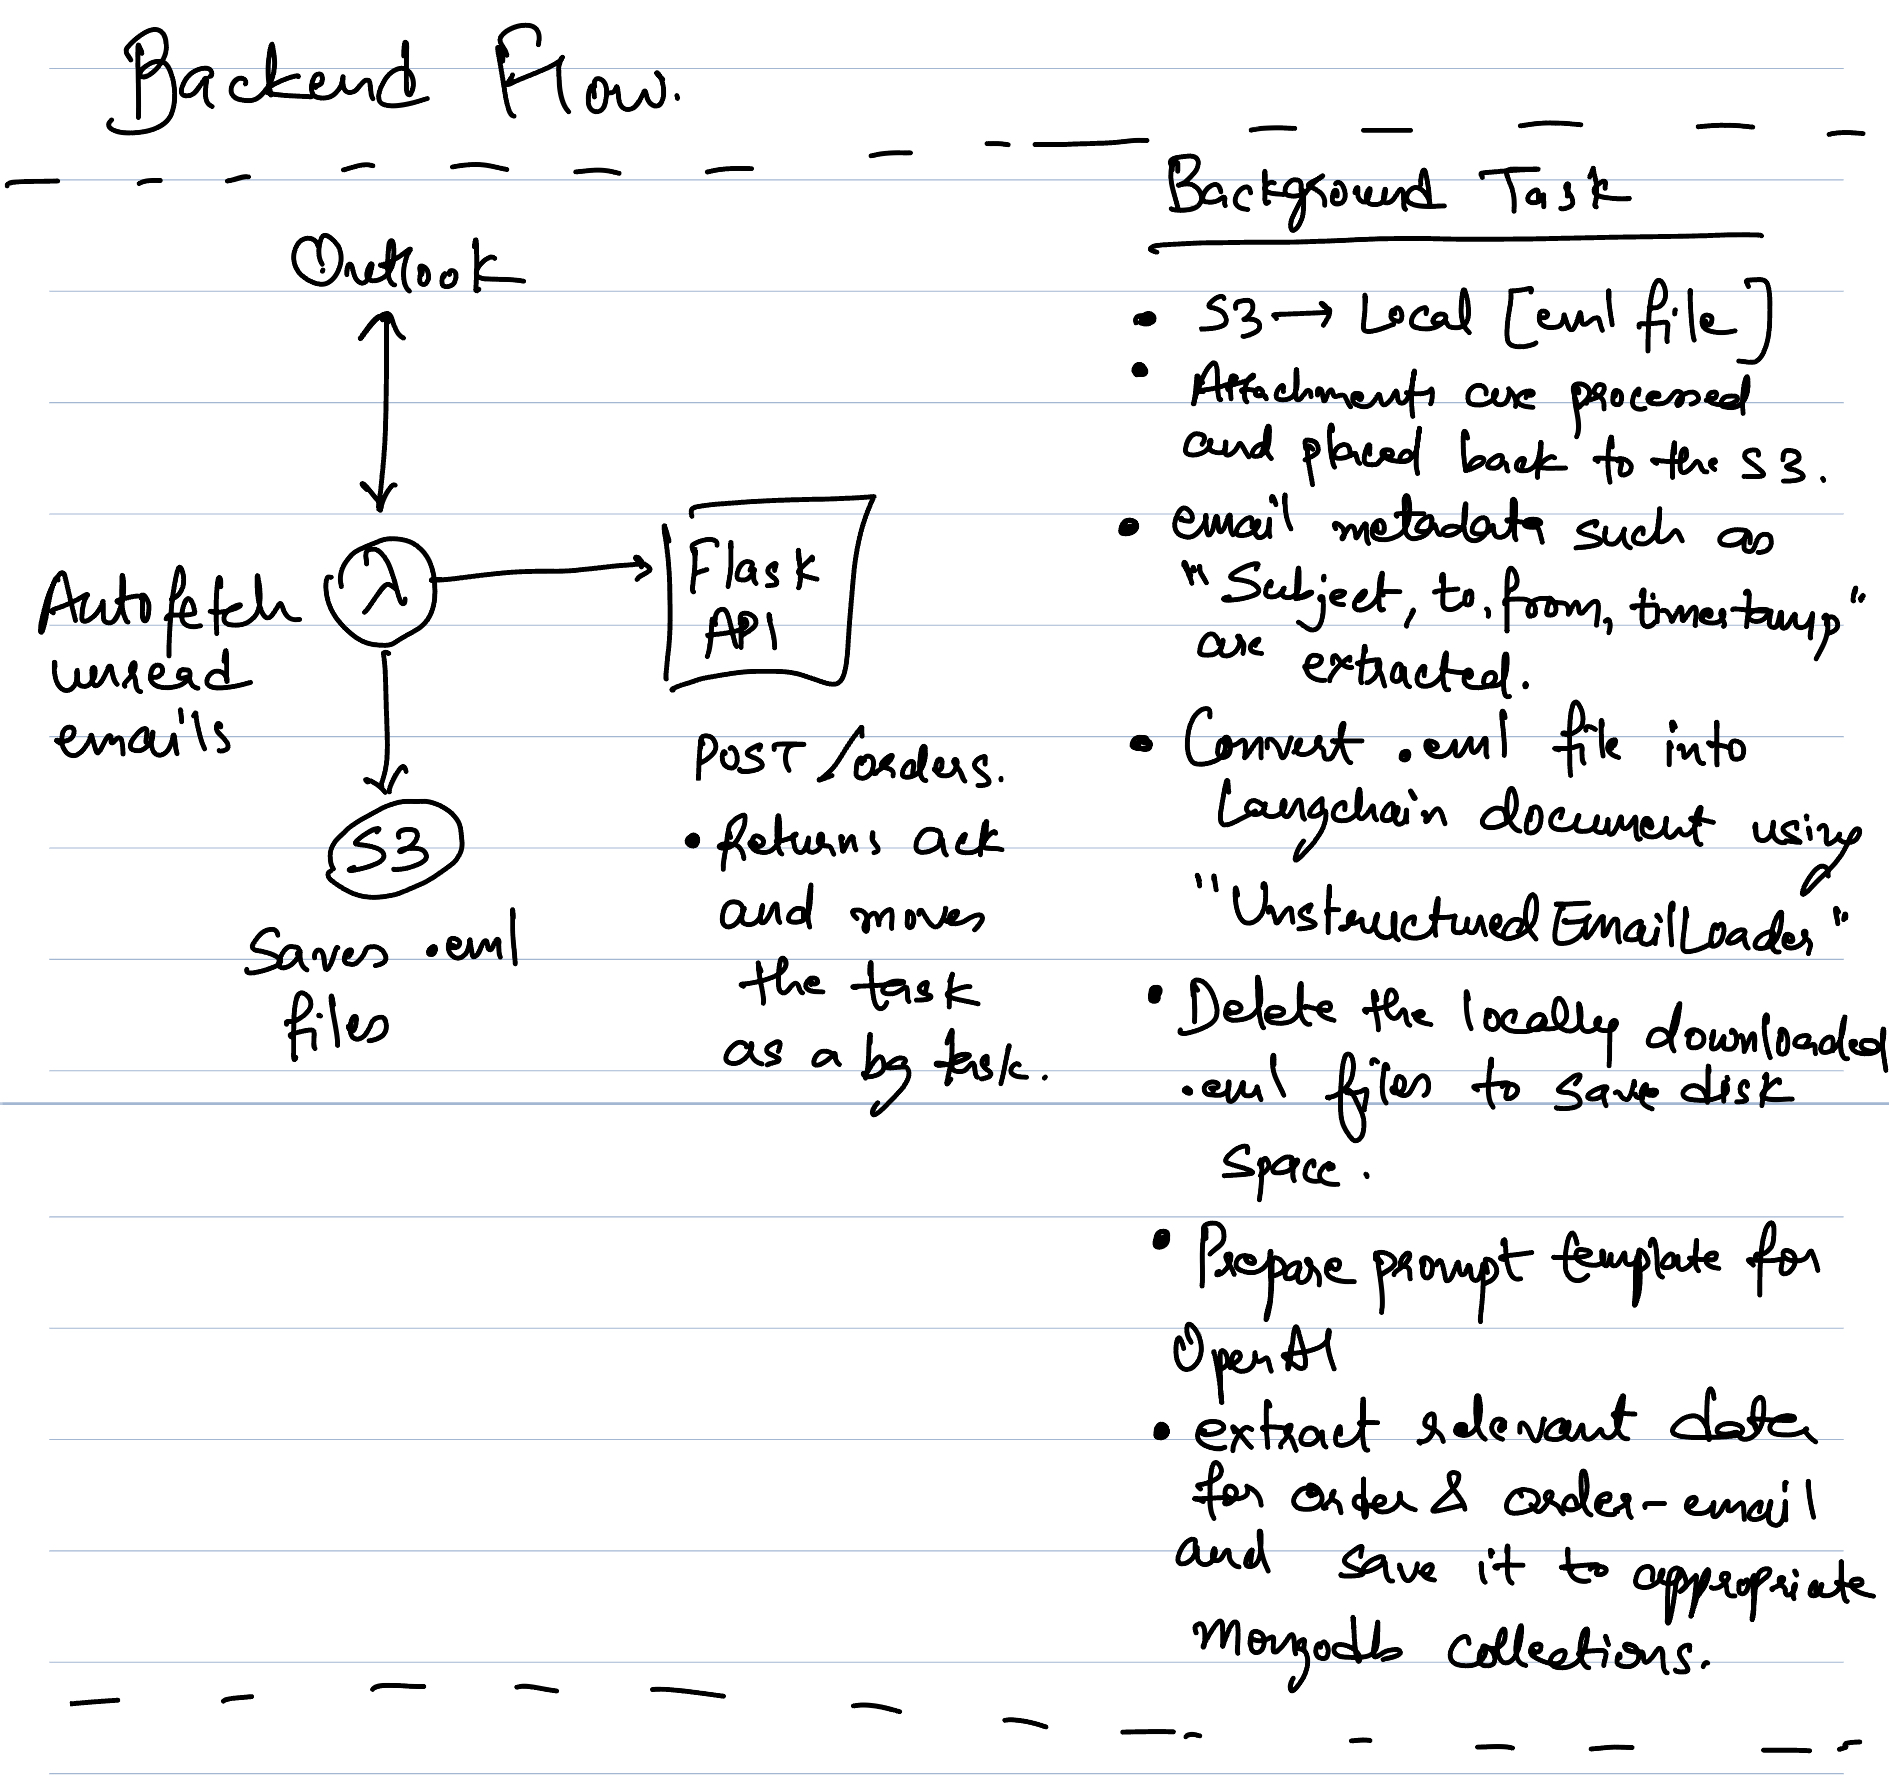 Backend Flow.
Outlook
λ
Autofetch
unread
emails
Flask
API
S3
Saves .eml
files
POST /orders.
• Returns ack
and moves
the task
as a bg task.
Background Task
• S3 → Local [eml file]
• Attachments are processed
and placed back to the S3.
• email metadata such as
"Subject, to, from, timestamp"
are extracted.
• Convert .eml file into
Langchain document using
"UnstructuredEmailLoader"
• Delete the locally downloaded
.eml files to save disk
space.
• Prepare prompt template for
OpenAI
• extract relevant data
for order & order-email
and save it to appropriate
mongodb collections.